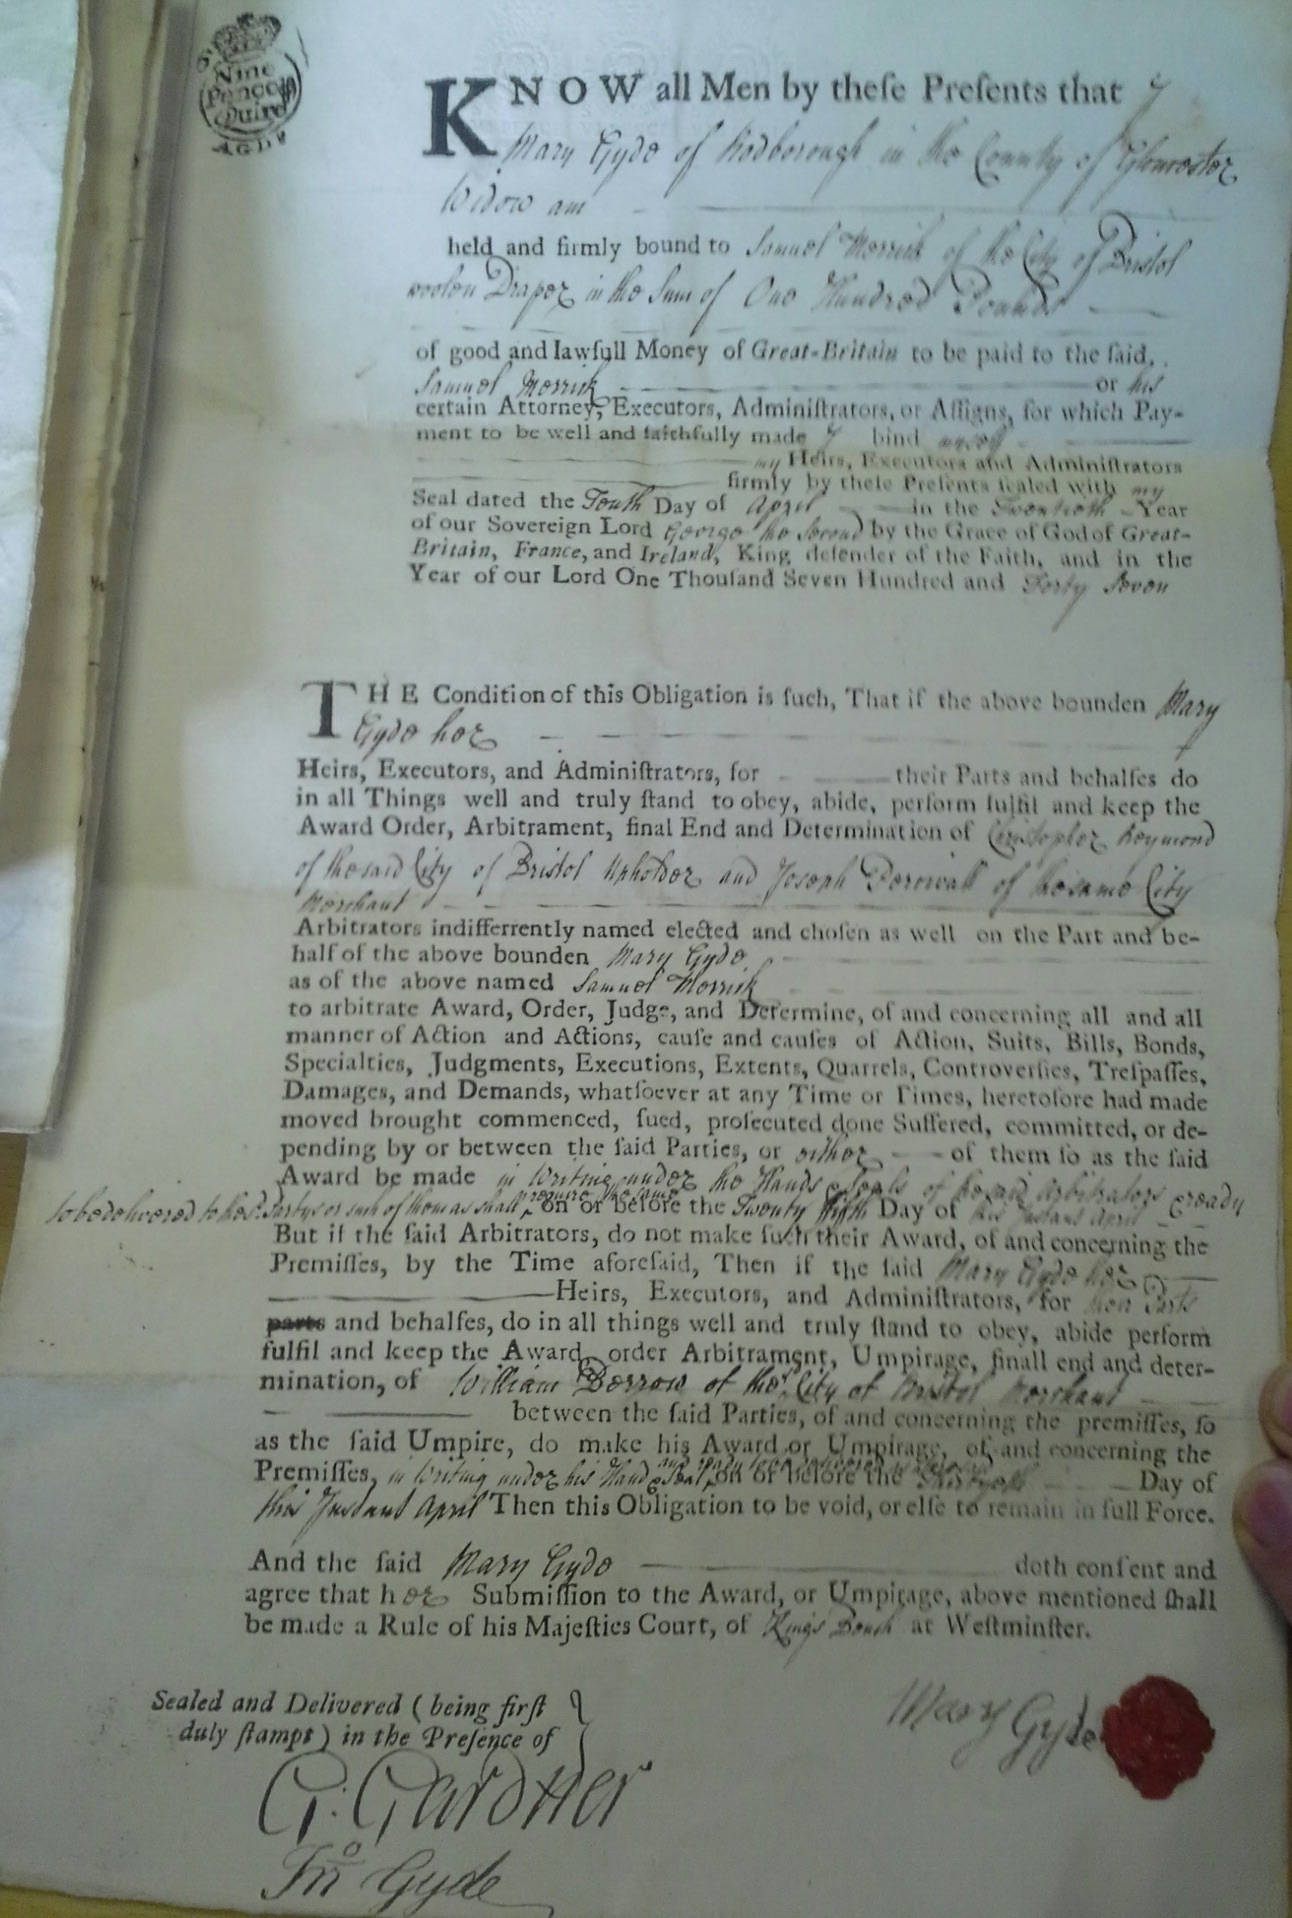 Nine
Pence 
Quire
KNOW all Men by theſe Preſents that I
Mary Gyde of Rodborough in the County of Gloucester
Widow am
held and firmly bound to Samuel Merrick of the City of Bristol
woolen Draper in the Sum of One Hundred Pounds
of good and lawfull Money of Great-Britain to be paid to the ſaid
Samuel Merrick or his
certain Attorney, Executors, Adminiſtrators, or Aſſigns, for which Pay-
ment to be well and faithfully made I bind myself
my Heirs, Executors and Adminiſtrators
firmly by theſe Preſents ſealed with my
Seal dated the Tenth Day of April in the Twentieth Year
of our Sovereign Lord George the Second by the Grace of God of Great-
Britain, France, and Ireland, King, defender of the Faith, and in the
Year of our Lord One Thouſand Seven Hundred and Forty Seven
THE Condition of this Obligation is ſuch, That if the above bounden Mary
Gyde her
Heirs, Executors, and Adminiſtrators, for their Parts and behalfes do
in all Things well and truly ſtand to obey, abide, perform fulfil and keep the
Award Order, Arbitrament, final End and Determination of Christopher Reymond
of the said City of Bristol Upholder and Joseph Percivall of the same City
Merchant
Arbitrators indifferrently named elected and choſen as well on the Part and be-
half of the above bounden Mary Gyde
as of the above named Samuel Merrick
to arbitrate Award, Order, Judge, and Determine, of and concerning all and all
manner of Action and Actions, cauſe and cauſes of Action, Suits, Bills, Bonds,
Specialties, Judgments, Executions, Extents, Quarrels, Controverſies, Treſpaſſes,
Damages, and Demands, whatſoever at any Time or Times, heretofore had made
moved brought commenced, ſued, proſecuted done Suffered, committed, or de-
pending by or between the ſaid Parties, or either of them ſo as the ſaid
Award be made in Writing under the Hands & Seals of the said Arbitrators & ready
to be delivered to the Partys or such of them as shall require the same on or before the Twenty fifth Day of this Instant April
But if the ſaid Arbitrators, do not make ſuch their Award, of and concerning the
Premiſſes, by the Time aforeſaid, Then if the ſaid Mary Gyde her
Heirs, Executors, and Adminiſtrators, for their Parts
parts and behalfes, do in all things well and truly ſtand to obey, abide perform
fulfil and keep the Award order Arbitrament, Umpirage, finall end and deter-
mination, of William Berrow of the City of Bristol Merchant
between the ſaid Parties, of and concerning the premiſſes, ſo
as the ſaid Umpire, do make his Award or Umpirage, of and concerning the
Premiſſes, in Writing under his Hand & Seal and ready to be delivered on or before the Thirtyeth Day of
this Instant April Then this Obligation to be void, or elſe to remain in full Force.
And the ſaid Mary Gyde doth conſent and
agree that her Submiſſion to the Award, or Umpirage, above mentioned ſhall
be made a Rule of his Majeſties Court, of Kings Bench at Weſtminſter.
Sealed and Delivered (being firſt
duly ſtampt) in the Preſence of
Mary Gyde
G: Gardner
Jno Gyde